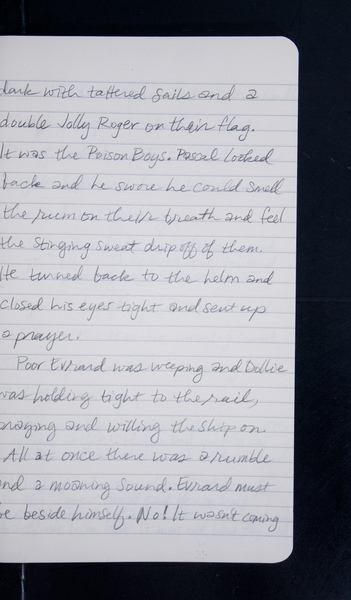 dark with tattered sails and a
double Jolly Roger on their flag.
It was the Poison Boys. Pascal looked
back and he swore he could smell
the rum on their breath and feel
the stinging sweat drip off of them.
He turned back to the helm and
closed his eyes tight and sent up
a prayer.
Poor Evrard was weeping and Dollie
was holding tight to the rail,
praying and willing the ship on.
All at once there was a rumble
and a moaning sound. Evrard must
be beside himself. No! It wasn't coming